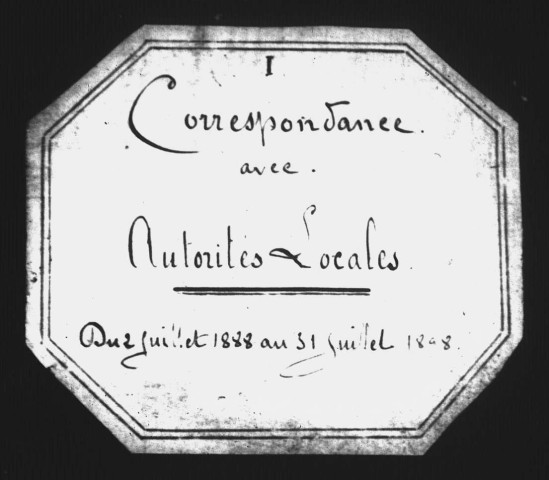 I
Correspondance.
avec.
Autorités Locales.
Du 2 Juillet 1888 au 31 Juillet 1898.